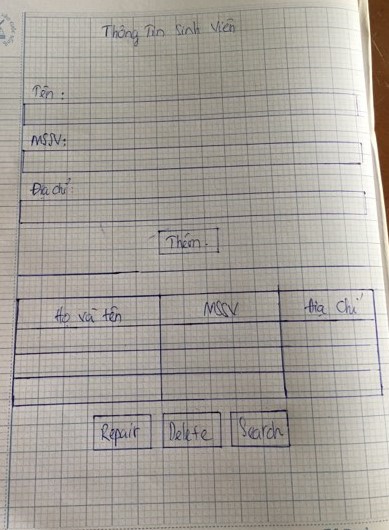 Thông Tin Sinh Viên
Tên :
MSSV:
Địa chỉ:
Thêm.
Họ và tên MSSV Địa chỉ
Repair Delete Search